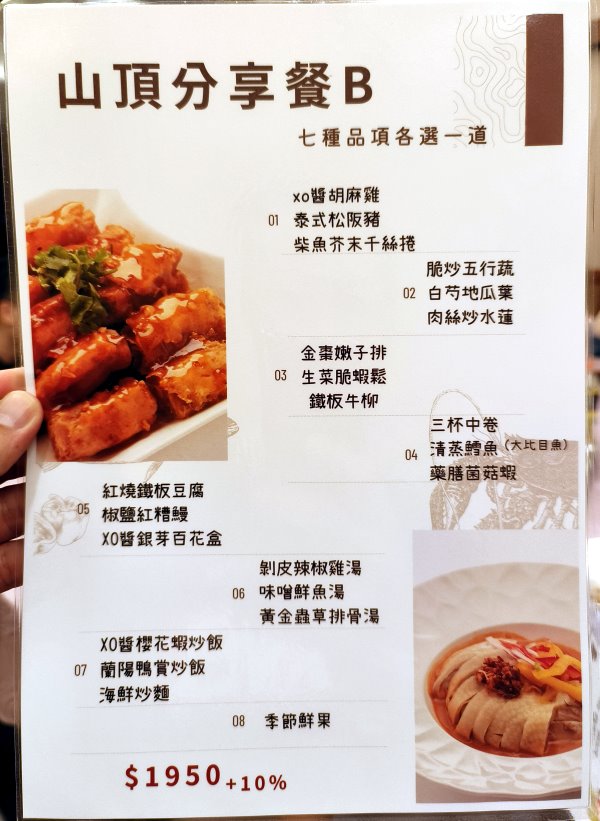 山頂分享餐B
七種品項各選一道
xo醬胡麻雞
01 泰式松阪豬
柴魚芥末千絲捲
脆炒五行蔬
02 白芍地瓜葉
肉絲炒水蓮
金棗嫩子排
03 生菜脆蝦鬆
鐵板牛柳
三杯中卷
04 清蒸鱈魚(大比目魚)
藥膳菌菇蝦
紅燒鐵板豆腐
05 椒鹽紅糟鰻
XO醬銀芽百花盒
剝皮辣椒雞湯
06 味噌鮮魚湯
黃金蟲草排骨湯
XO醬櫻花蝦炒飯
07 蘭陽鴨賞炒飯
海鮮炒麵
08 季節鮮果
$1950+10%